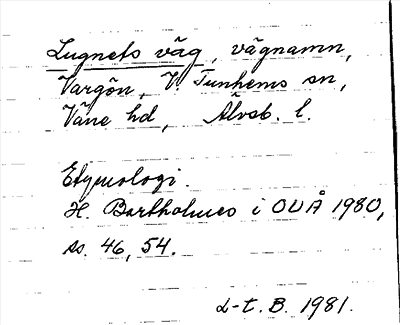 Lugnets väg, vägnamn,
Vargön, V. Tunhems sn,
Väne hd, Älvsb. l.
Etymologi.
H. Bartholmes i OUÅ 1980,
ss. 46, 54.
L-t. B. 1981.